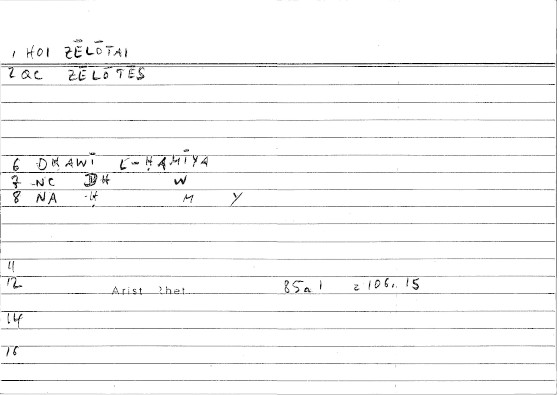 1 HOI ZĒLŌTAI
2 QC ZĒLŌTĒS
6 DHAWĪ L-ḤAMĪYA
7 NC DH W
8 NA Ḥ M Y
11
12 Arist Rhet. 85a1 = 106, 15
14
16